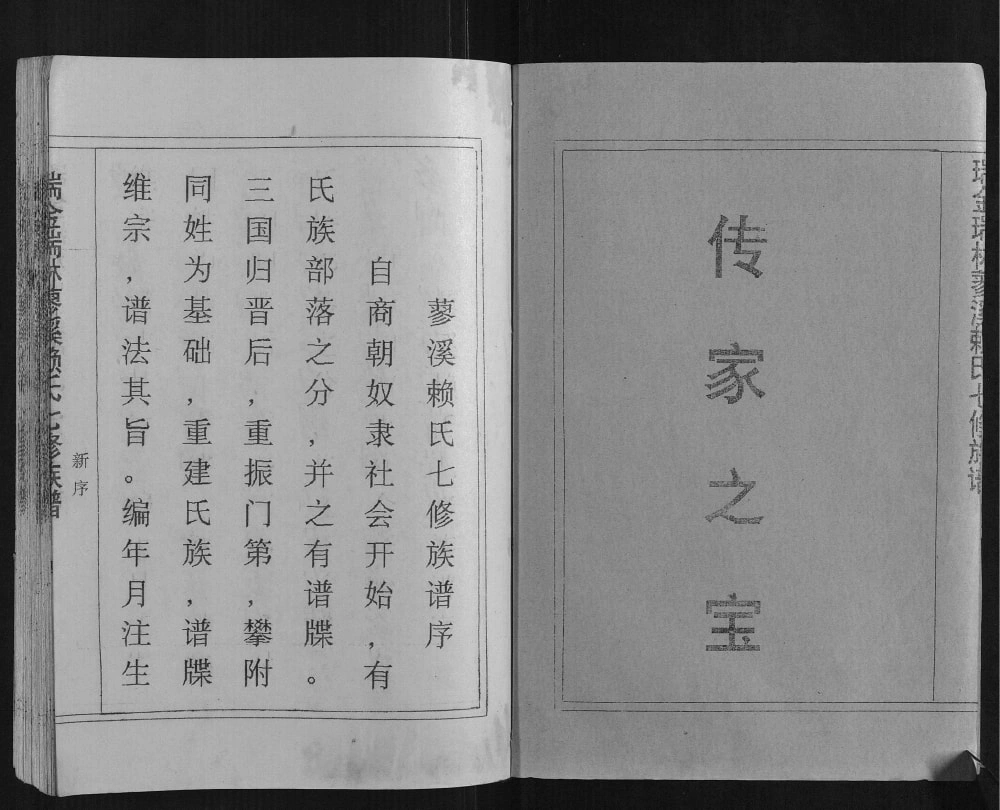 瑞金瑞林蓼溪赖氏七修族谱
传家之宝
蓼溪赖氏七修族谱序
自商朝奴隶社会开始,有
氏族部落之分,并之有谱牒。
三国归晋后,重振门第,攀附
同姓为基础,重建氏族,谱牒
维宗,谱法其旨。编年月注生
新序
瑞金瑞林蓼溪赖氏七修族谱